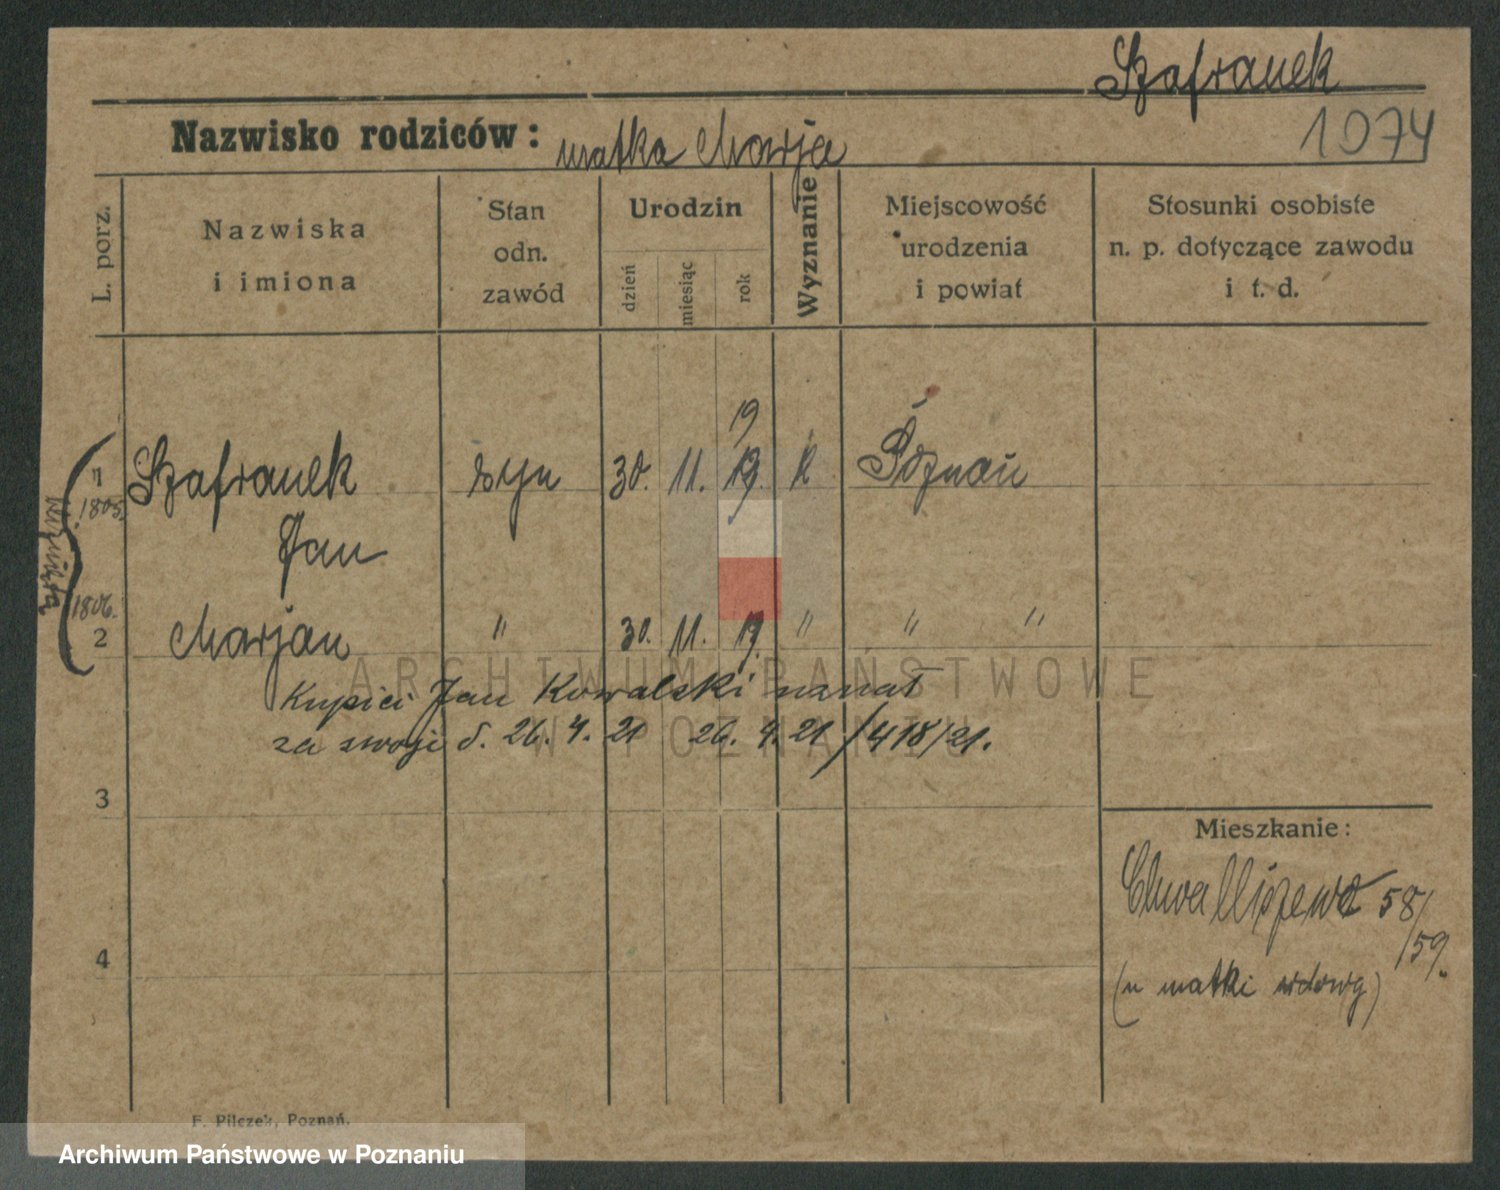 Szafranek
1074
Nazwisko rodziców: matka Marja
L. porz.
Nazwiska
i imiona
Stan
odn.
zawód
Urodzin
dzień
miesiąc
rok
Wyznanie
Miejscowość
urodzenia
i powiat
Stosunki osobiste
n. p. dotyczące zawodu
i t. d.
19
1 Szafranek syn 30. 11. 19. k Poznań
1805.
Jan
bliźnięta
1806.
2 Marjan " 30. 11. 19. " " "
ARCHIWUM PAŃSTWOWE
W POZNANIU
Kupiec Jan Kowalski uznał
za swoje d. 26. 4. 21 26. 4. 21 /418/21.
3
Mieszkanie:
Chwaliszewo 58/
/59.
4
(u matki wdowy)
F. Pilczek, Poznań.
Archiwum Państwowe w Poznaniu